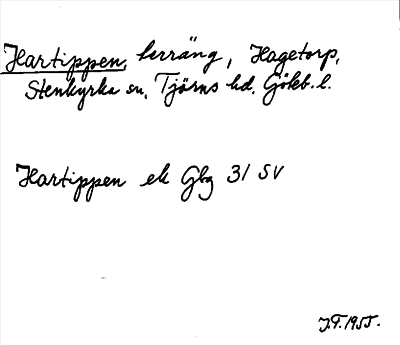 Hartippen, terräng, Hagetorp,
Stenkyrka sn, Tjörns hd, Göteb. l.
Hartippen ek Gbg 31 SV
J.F. 1955.